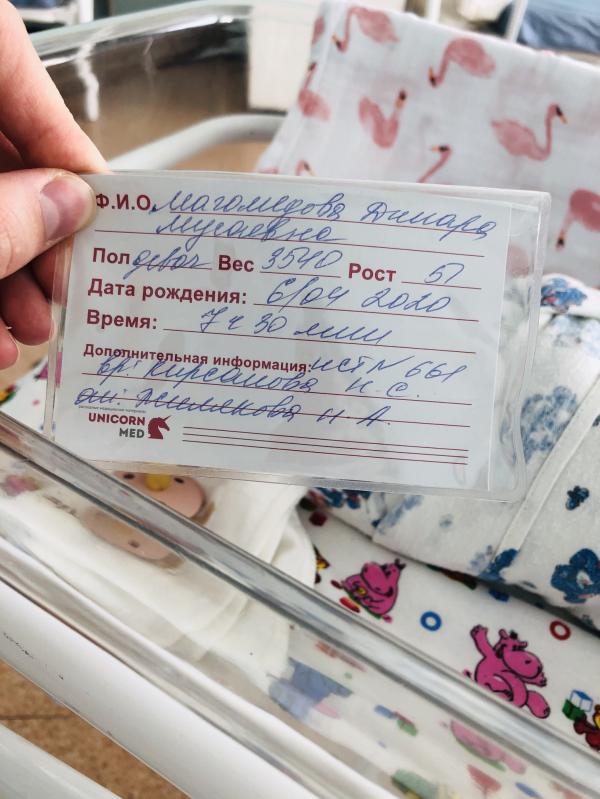 Ф.И.О. Магомедова Динара
Мусаевна
Пол девоч Вес 3540 Рост 51
Дата рождения: 6/04 2020
Время: 7 ч 30 мин
Дополнительная информация: ист N 661
вр: Кирсанова Н. С.
ак: Жилякова Н А.
UNICORN
MED